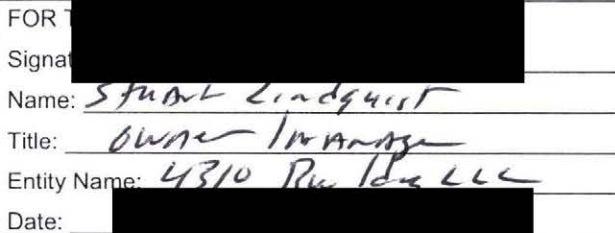 FOR
Signat
Name: Stuart Lindquist
Title: owner / manager
Entity Name: 4310 LLC
Date: